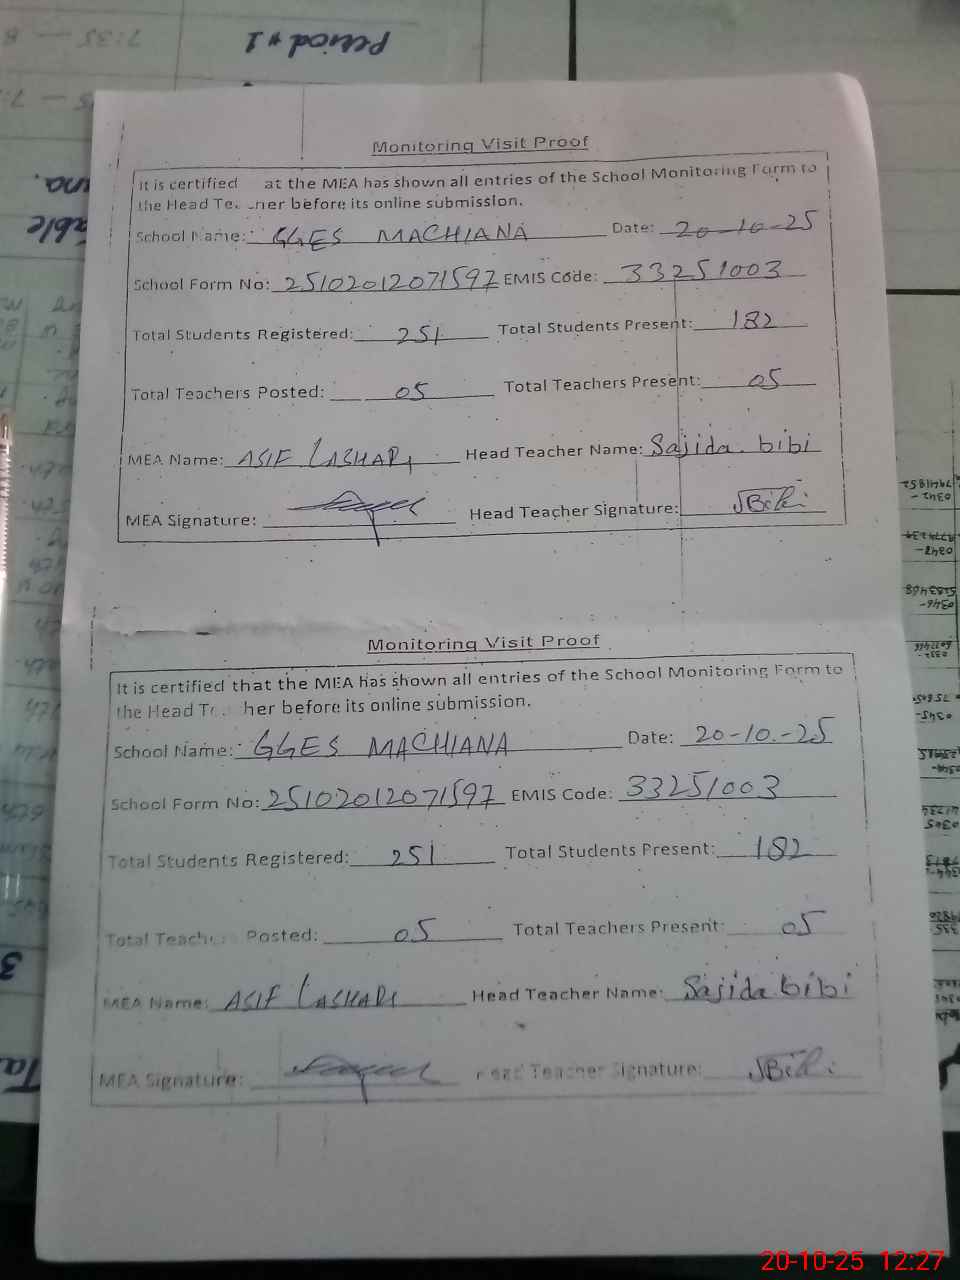 Period #1
7:35 — 8
Monitoring Visit Proof
It is certified at the MEA has shown all entries of the School Monitoring Form to
the Head Te. .ner before its online submission.
School Name: GGES MACHIANA Date: 20-10-25
School Form No: 25102012071597 EMIS Code: 33251003
Total Students Registered: 251 Total Students Present: 182
Total Teachers Posted: 05 Total Teachers Present: 05
MEA Name: ASIF LASHARI Head Teacher Name: Sajida bibi
MEA Signature: Head Teacher Signature: Bibi
Monitoring Visit Proof
It is certified that the MEA has shown all entries of the School Monitoring Form to
the Head Te. her before its online submission.
School Name: GGES MACHIANA Date: 20-10-25
School Form No: 25102012071597 EMIS Code: 33251003
Total Students Registered: 251 Total Students Present: 182
Total Teache Posted: 05 Total Teachers Present: 05
MEA Name: ASIF LASHARI Head Teacher Name: Sajida bibi
MEA Signature: Head Teacher Signature: Bibi
20-10-25 12:27